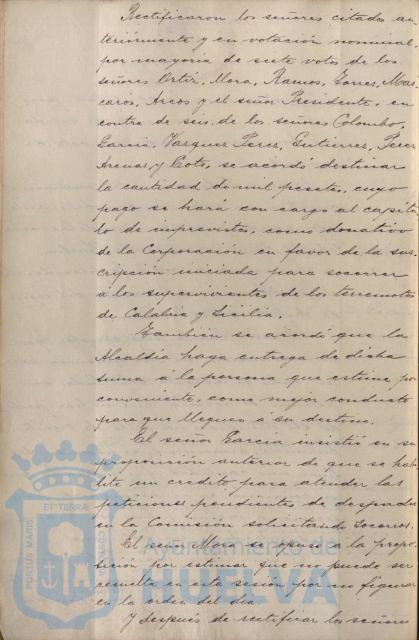 Rectificaron los señores citados an
teriormente y en votación nominal,
por mayoria de siete votos de los
señores Ortiz, Mora, Ramos, Torres, Mas
caros, Arcos y el señor Presidente, en
contra de seis, de los señores Colombo,
Garcia, Vazquez Perez, Gutierrez, Perez
Arenas, y Coto, se acordó destinar
la cantidad de mil pesetas, cuyo
pago se hará con cargo al capitu
lo de imprevistos, como donativo
de la Corporación en favor de la sus
cripción iniciada para socorrer
á los supervivientes de los terremotos
de Calabria y Sicilia.
Tambien se acordó que la
Alcaldia haga entrega de dicha
suma á la persona que estime por
conveniente, como mejor conducto
para que lleguen á su destino.
El señor Garcia insistió en su
proposición anterior de que se habi
lite un crédito para atender las
peticiones pendientes de despacho
en la Comisión solicitando socorros.
El señor Mora se opuso á la propo
sición por estimar que no puede ser
resuelta en esta sesión por no figurar
en la orden del dia
Y después de rectificar los señores
PORTUS MARIS
ET TERRAE
Ayuntamiento de
HUELVA